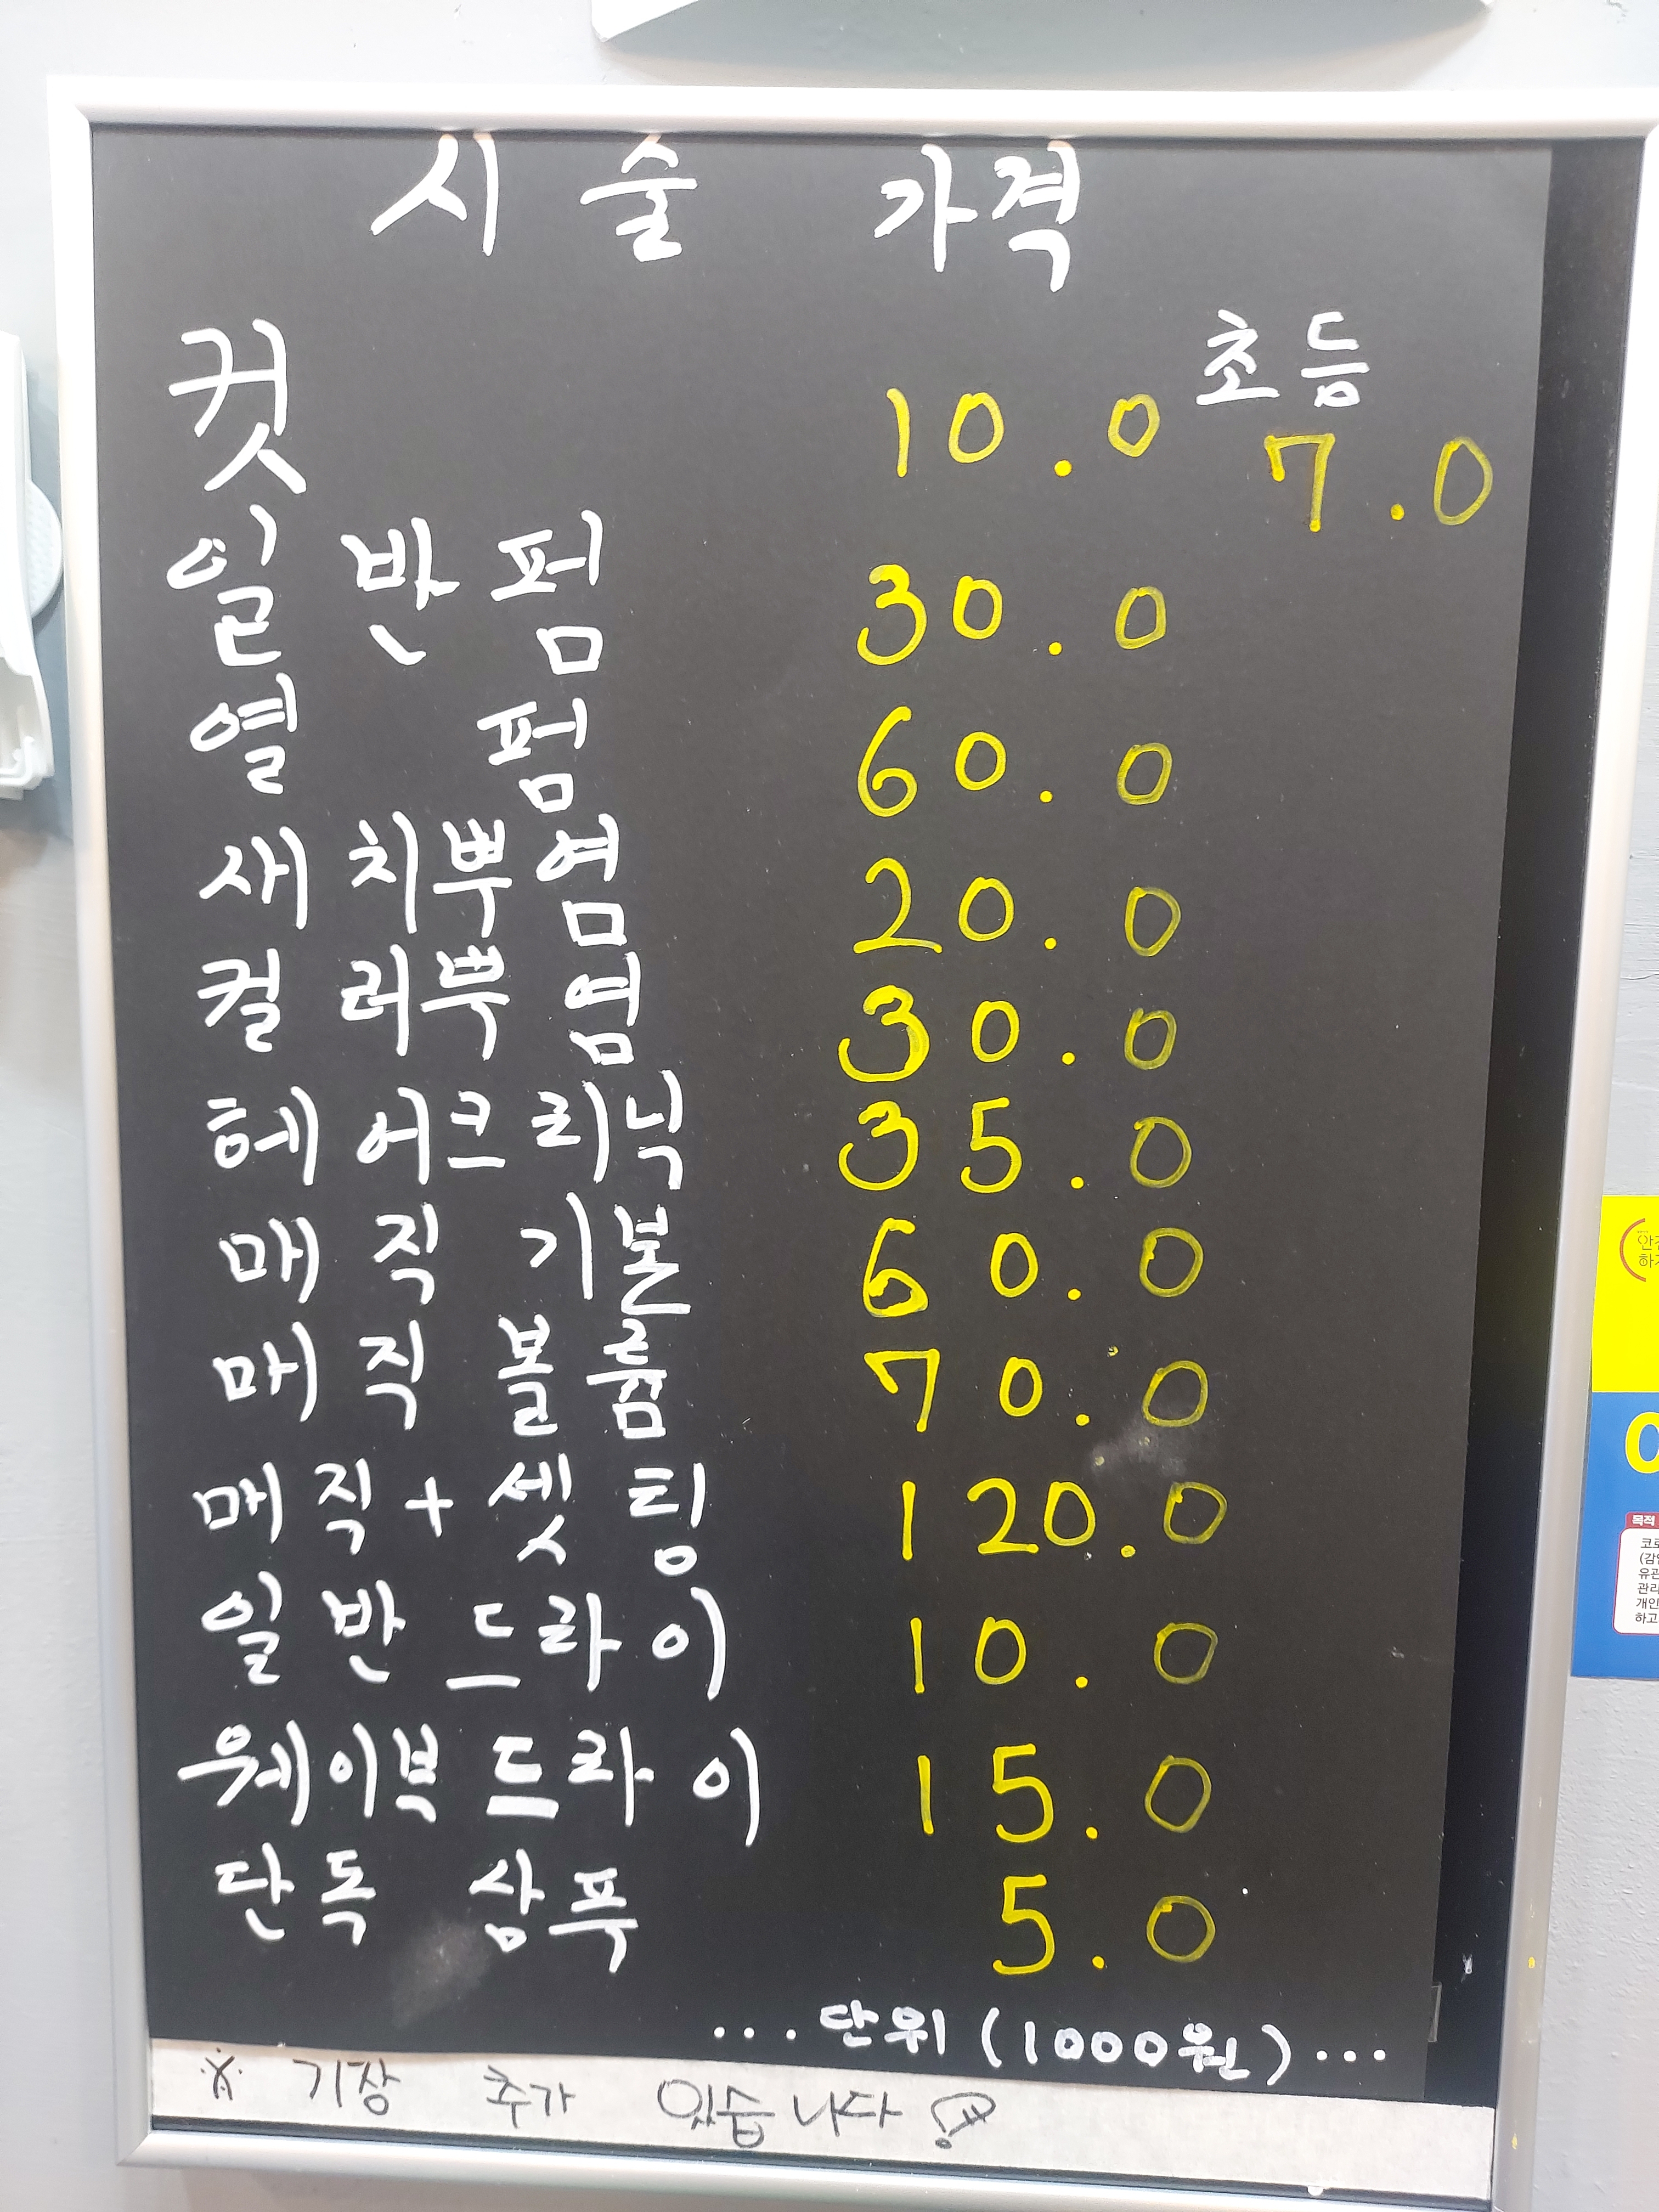 시술 가격
컷 10.0 초등 7.0
일반펌 30.0
열펌 60.0
새치뿌염 20.0
컬러뿌염 30.0
헤어크리닉 35.0
매직 기본 60.0
매직 볼륨 70.0
매직+셋팅 120.0
일반드라이 10.0
웨이브드라이 15.0
단독 샴푸 5.0
...단위(1000원)...
※ 기장 추가 있습니다
안전
하
목적
코로
유관
관리
개인
하고